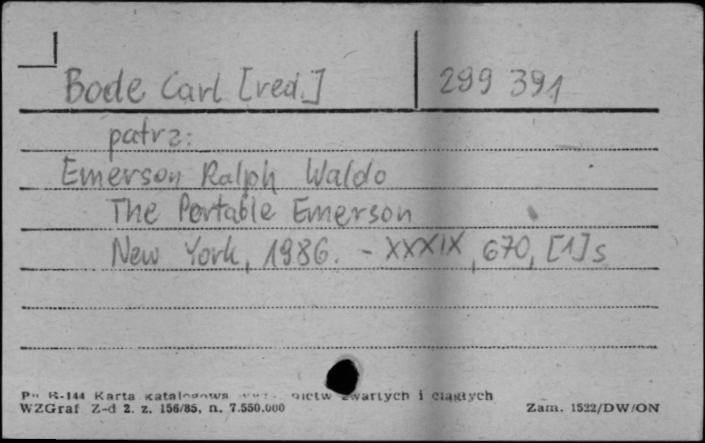 Bode Carl [red.] 299 391
patrz:
Emerson Ralph Waldo
The Portable Emerson
New York, 1986. - XXXIX, 670, [1] s
Pu K-144 Karta katalogowa zwartych i ciągłych
WZGraf Z-d 2. z. 156/85, n. 7.550.000 Zam. 1522/DW/ON